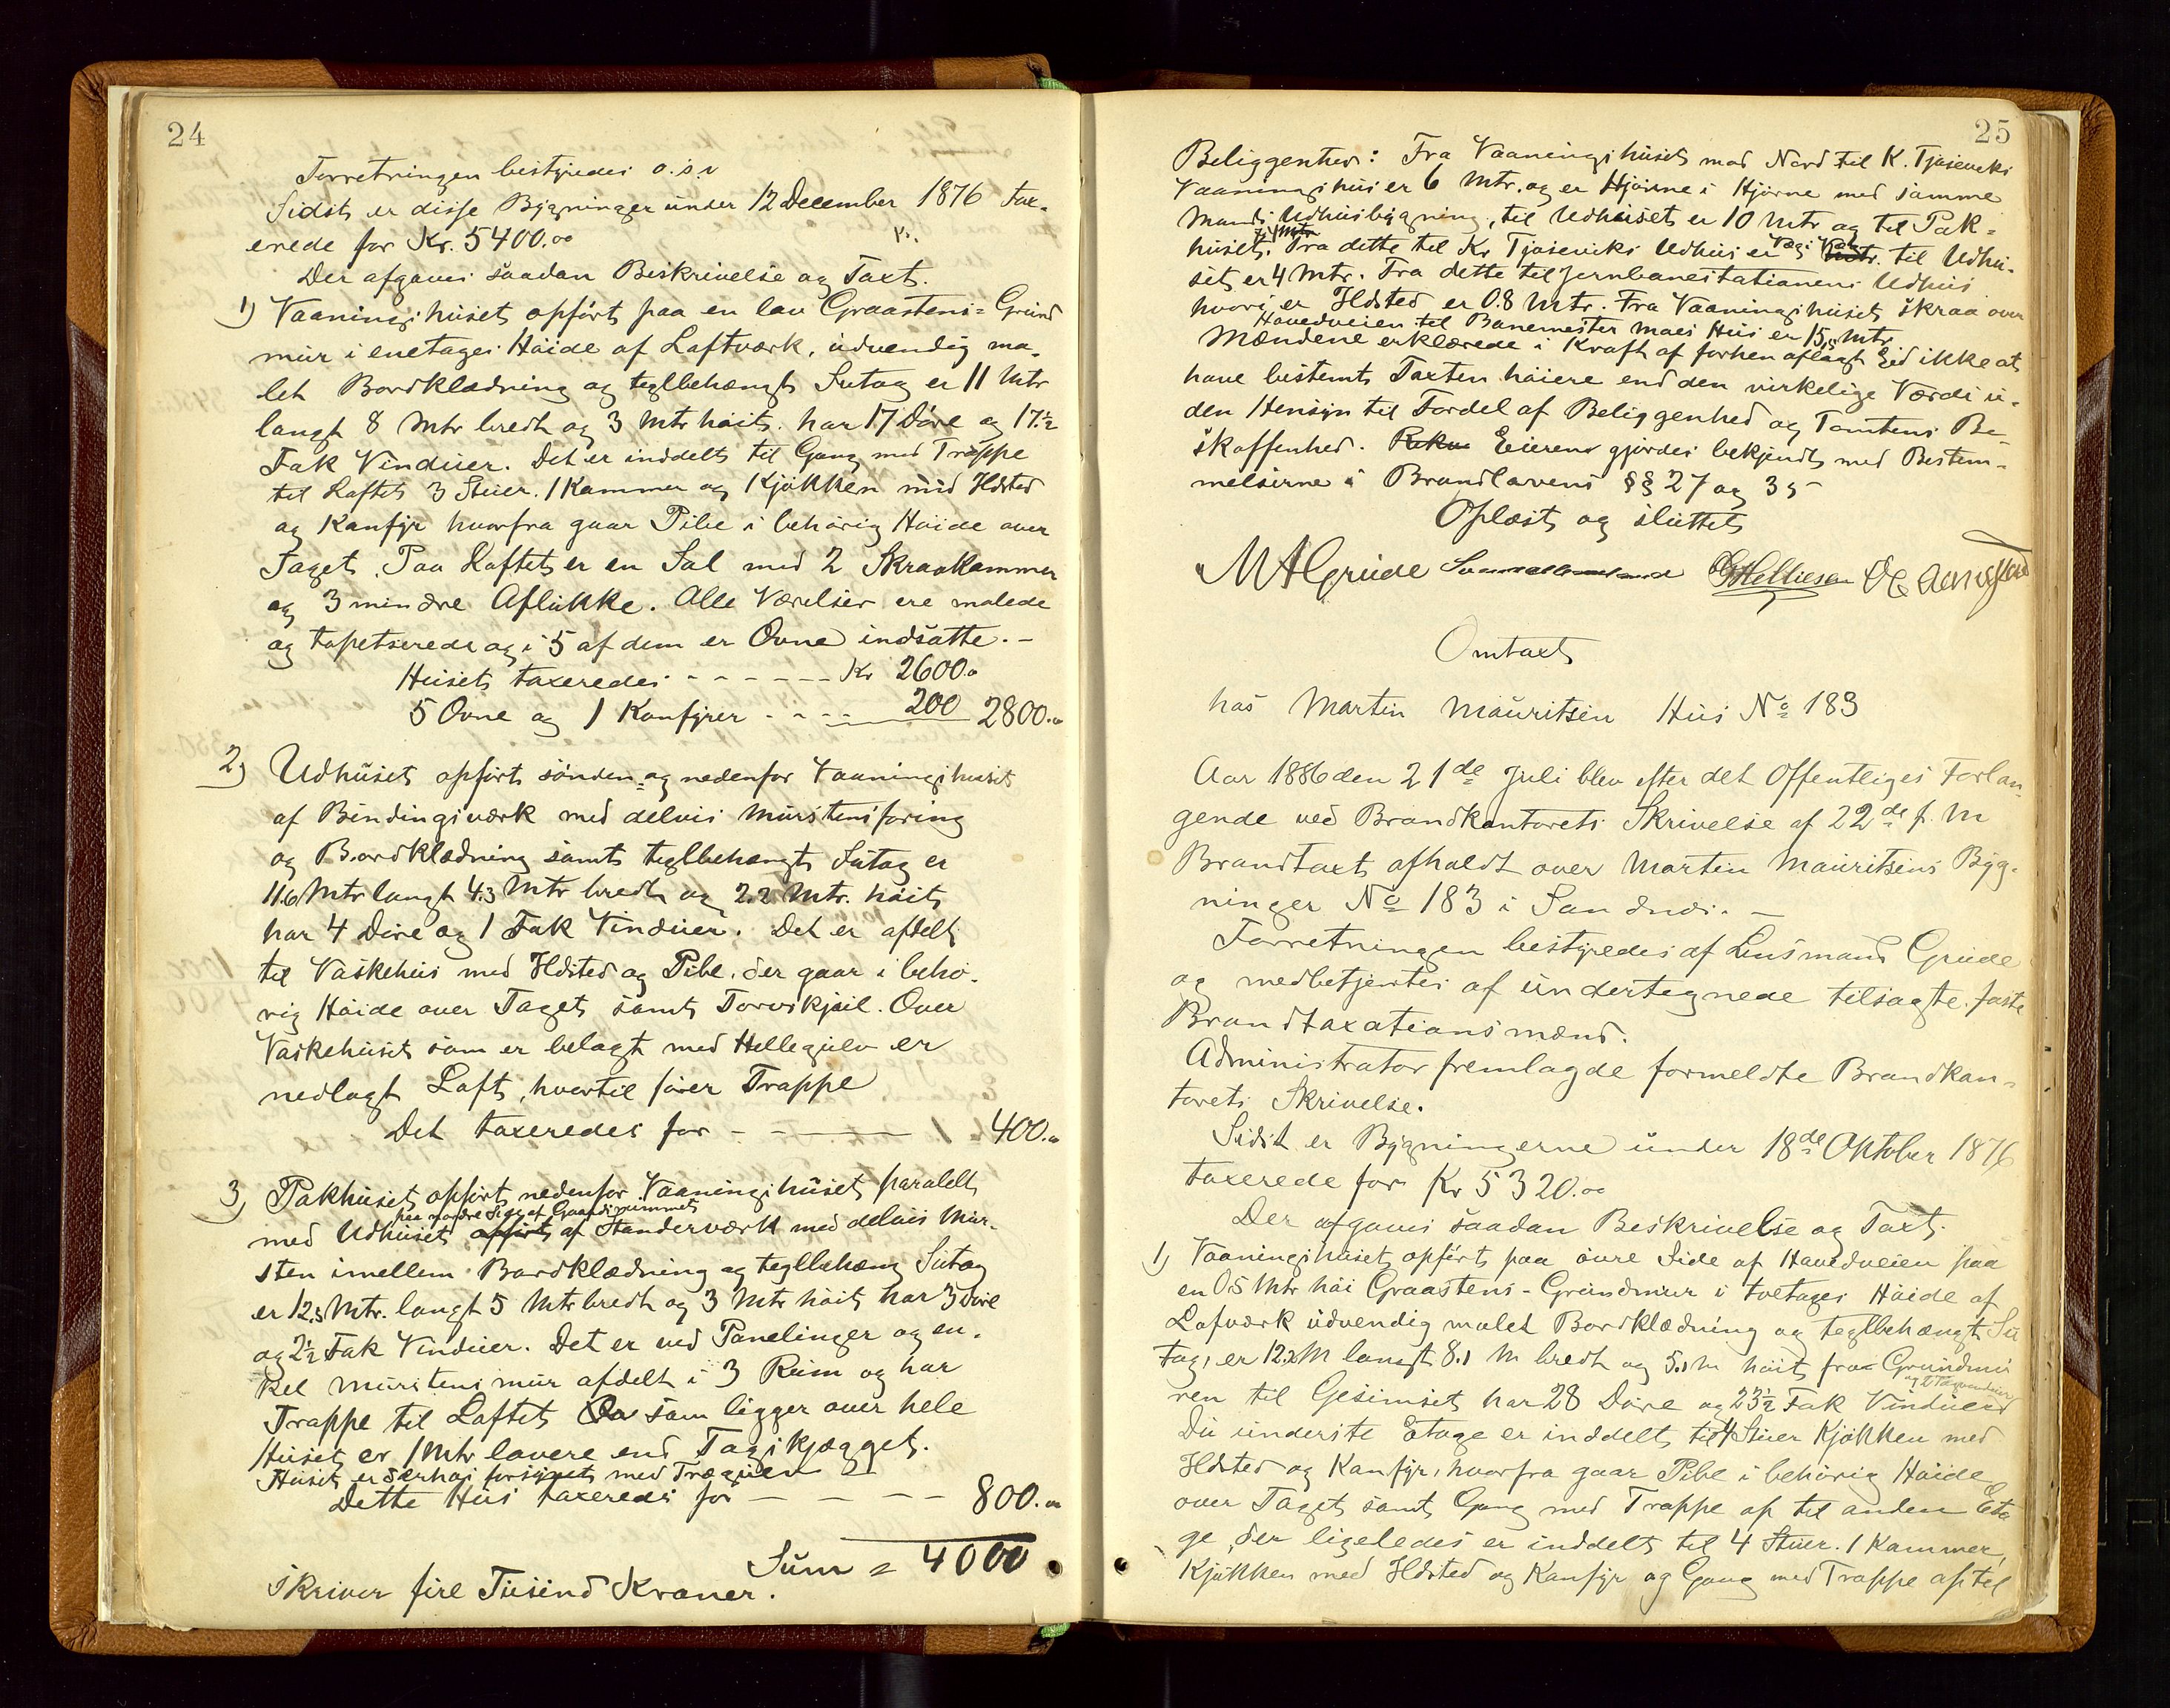 24
Forretningen bestyredes o.s.v
Sidst er disse Bygninger under 12 December 1876 tax-
erede for Kr. 5400.00
Kr.
Der afgaves saadan Beskrivelse og Taxt.
1) Vaaningshuset opført paa en lav Graastens-Grund
mur i enetages Høide af Laftværk, udvendig ma-
let Bordklædning og teglbehængt Sutag er 11 Mtr
langt 8 Mtr bredt og 3 Mtr høit. har 17 Døre og 17½
Fak Vinduer. Det er inddelt til Gang med Trappe
til Loftet 3 Stuer. 1 Kammer og Kjøkken med Ildsted
og Komfyr hvorfra gaar Pibe i behørig Høide over
Taget. Paa Loftet er en Sal med 2 Skraakammer
og 3 mindre Aflukke. Alle Værelser ere malede
og tapetserede og i 5 af dem er Ovne indsatte. -
Huset taxeredes - - - - - - Kr 2600.00
5 Ovne og 1 Komfyrer - - - - 200 2800.00
2) Udhuset opført sønden og nedenfor Vaaningshuset
af Bindingsværk med delvis Murstensforing
og Bordklædning samt teglbehængt Sutag er
11.6 Mtr langt 4.3 Mtr bredt og 2.2 Mtr. høit
har 4 Døre og 1 Fak Vinduer. Det er afdelt
til Vaskehus med Ildsted og Pibe, der gaar i behø-
rig Høide over Taget samt Torvskjæl. Over
Vaskehuset som er belagt med Hellegulv er
nedlagt Loft, hvortil fører Trappe
Det taxeredes for - - - - 400.00
3) Pakhuset opført nedenfor Vaaningshuset paralelt
paa nordre Side af Gaardsrummet
med Udhuset opført af Standerværk med delvis Mur-
sten imellem Bordklædning og teglbehæng Sutag
er 12.5 Mtr. langt 5 Mtr bredt og 3 Mtr høit har 3 Døre
og 2½ Fak Vinduer. Det er ved Panelinger og en-
kel murstens mur afdelt i 3 Rum og har
Trappe til Loftet som ligger over hele
Huset er 1 Mtr lavere end Tagskjægget.
Huset er særhøi forsynet med
Dette Hus taxeredes for - - - - 800.00
Sum = 4000
skriver fire Tusind Kroner.
25
Beliggenhed: Fra Vaaningshuset mod Nord til K. Tjøseviks
Vaaningshus er 6 Mtr. og er Hjørne i Hjørne med samme
Mands Udhusbygning, til Udhuset er 10 Mtr og til Pak-
Mtr
huset. Fra dette til Kr Tjøseviks Udhus er Væg i Væg Mtr. til Udhu-
set er 4 Mtr. Fra dette til Jernbanestationens Udhus
hvori er Ildsted er 0.8 Mtr. Fra Vaaningshuset skraa over
Hovedveien til Banemester Maes Hus er 15,5 Mtr
Mændene erklærede i Kraft af forhen aflagt Eed ikke at
have bestemt Taxten høiere end den virkelige Værdi u-
den Hensyn til Fordel af Beliggenhed og Tomtens Be-
skaffenhed. Eieren gjordes bekjendt med Bestem-
melserne i Brandlovens §§ 27 og 35
Oplæst og sluttet
MAGrude GHelliesen
Omtaxt
hos Martin Mauritsen Hus No 183
Aar 1886 den 21de Juli blev efter det Offentliges Forlan-
gende ved Brandkontorets Skrivelse af 22de f. M
Brandtaxt afholdt over Martin Mauritsens Byg-
ninger No 183 i Sandnes. -
Forretningen bestyredes af Lensmand Grude
og medbetjentes af undertegnede tilsagte faste
Brandtaxationsmænd.
Administrator fremlagde formeldte Brandkon-
torets Skrivelse.
Sidst er Bygningerne under 18de Oktober 1876
taxerede for Kr 5320.00
Der afgaves saadan Beskrivelse og Taxt.
1) Vaaningshuset opført paa øvre Side af Hovedveien paa
en 0.5 Mtr høi Graastens-Grundmur i toetages Høide af
Lafværk udvendig malet Bordklædning og teglbehængt Su
tag, er 12.2 M langt 8.1 M bredt og 5.1 M høit fra Grundmu
ren til Gesimset har 28 Døre og 23½ Fak Vinduer
og 2 Tagvinduer
Du underste Etage er inddelt til 4 Stuer Kjøkken med
Ildsted og Komfyr, hvorfra gaar Pibe i behørig Høide
over Taget samt Gang med Trappe op til anden Eta
ge, der ligeledes er inddelt til 4 Stuer. 1 Kammer,
Kjøkken med Ildsted og Komfyr og Gang med Trappe op til